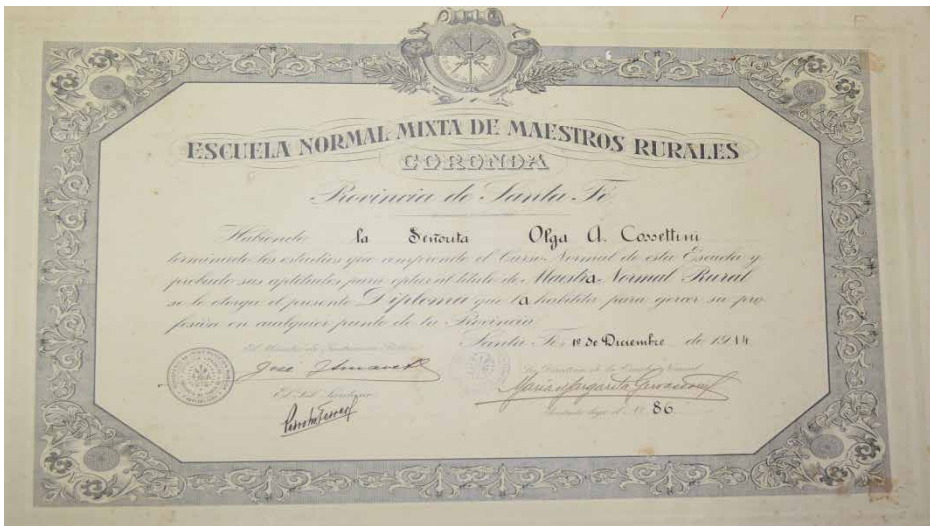 ESCUELA NORMAL MIXTA DE MAESTROS RURALES
CORONDA
Provincia de Santa Fé
Habiendo la Señorita Olga A. Cossettini
terminado los estudios que comprende el Curso Normal de esta Escuela y
probado sus aptitudes para optar al título de Maestra Normal Rural
se le otorga el presente Diploma que la habilita para ejercer su pro-
fesión en cualquier punto de la Provincia
Santa Fé, 1º de Diciembre de 1914
El Ministro de Instrucción Pública
La Directora de la Escuela Normal
José
María Margarita
El Sub-Secretario
Anotado bajo el Nº 86